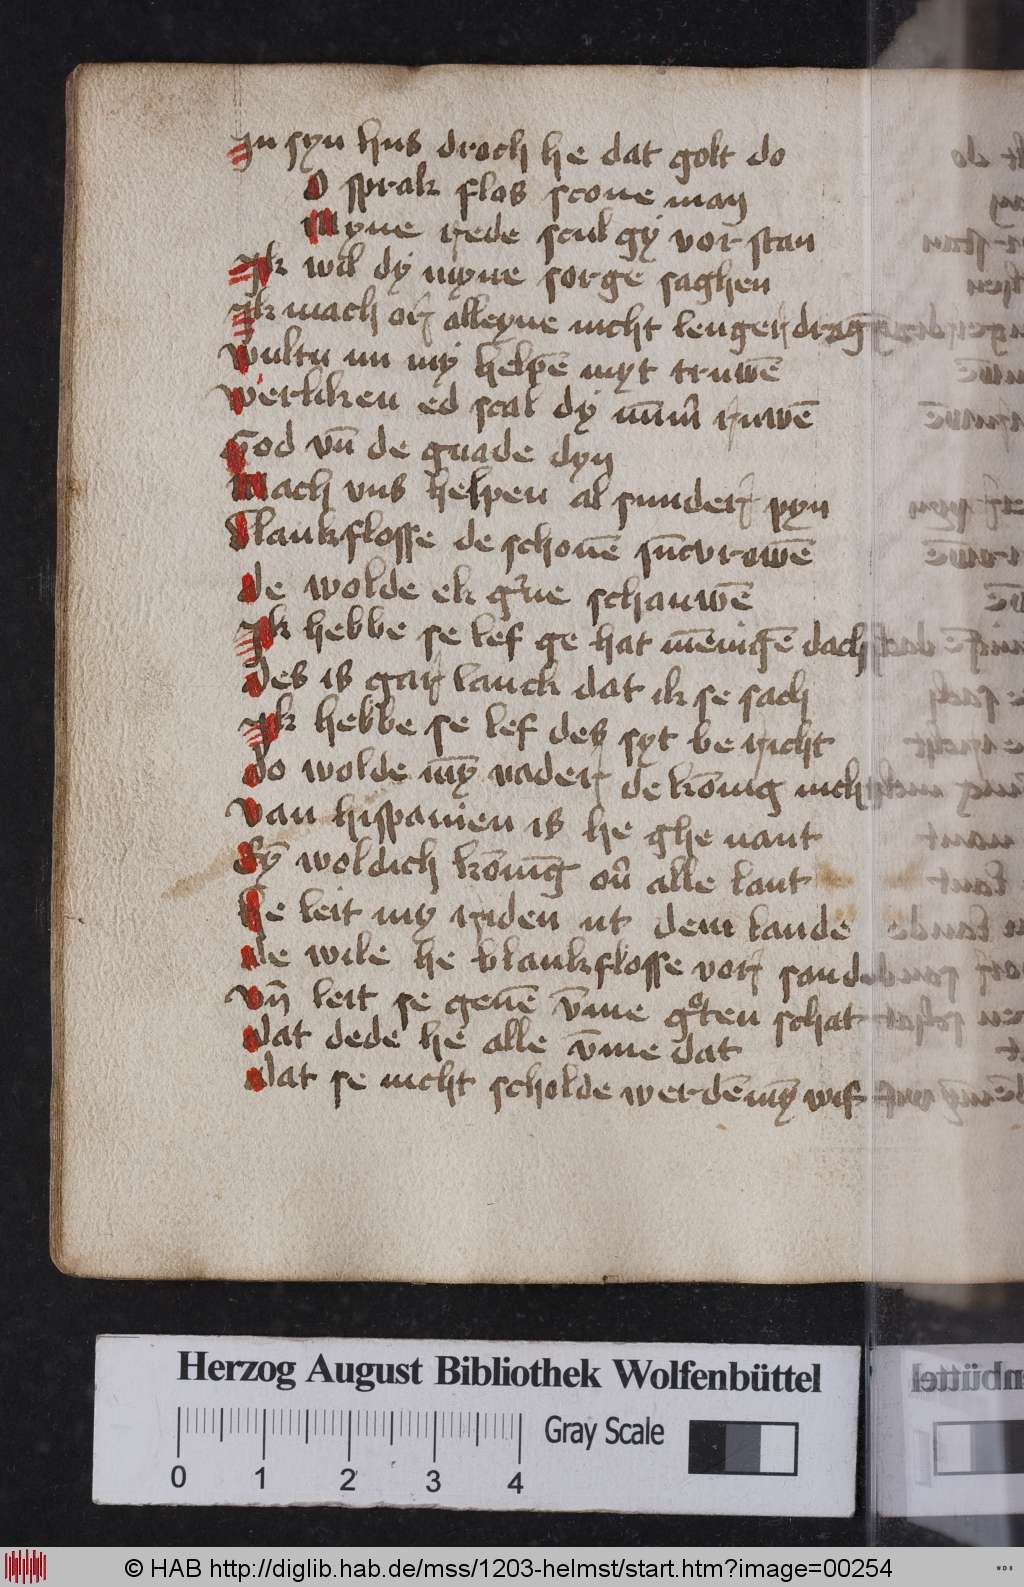 In syn hus droch he dat golt do
O sprak flos scone man
Myne rede scul gy vor stan
Ik wil dy myne sorge saghen
Ik mach or alleyne nicht lenger drag̅
Wultu nu my help̅e myt truw̅e
Werliken ed scal dy num̅ ruw̅e
God vn̅ de gnade dyn
Mach vns helpen al sunder pyn
Blankflosse de schon̅e iu̅cvrow̅e
de wolde ek g̅ne schauw̅e
Ik hebbe se lef ge hat m̅enig̅e dach
des is gar lanck dat ik se sach
Ik hebbe se lef des syt be richt
do wolde my̅ vader de ko̅nig nicht
Van hispanien is he ghe nant
Sy̅ woldich ko̅nig̅ ou̅ alle lant
he leit my riden ut dem lande
de wile he blankflosse vor sande
Vn̅ leit se geu̅e v̅mme groten schat
dat dede he alle v̅mme dat
dat se nicht scholde werd̅e my̅ wif
Herzog August Bibliothek Wolfenbüttel
Gray Scale
0 1 2 3 4
© HAB http://diglib.hab.de/mss/1203-helmst/start.htm?image=00254